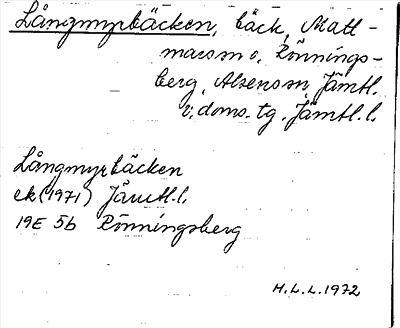 Långmyrbäcken, bäck, Matt-
marsm o. Rönnings-
berg, Alsens sn, Jämtl.
v. doms. tg. Jämtl. l.
Långmyrbäcken
ek (1971) Jämtl. l.
19E 5b Rönningsberg
H. L. L. 1972